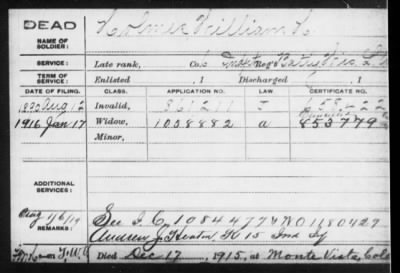 DEAD
NAME OF SOLDIER:
Holmes William H.
SERVICE:
Late rank, Co. Indpt Batry Wis L
TERM OF SERVICE:
Enlisted , 1 Discharged , 1
DATE OF FILING. CLASS. APPLICATION NO. LAW. CERTIFICATE NO.
Aug 12 Invalid, J
1916 Jan 17 Widow, 1058882 a 853779
Minor,
ADDITIONAL SERVICES:
REMARKS:
See I. C. 1084477 & WO 1180429
Andrew J. K 15 Ind Inf
Died Dec 17, 1915, at Monte Vista, Colo